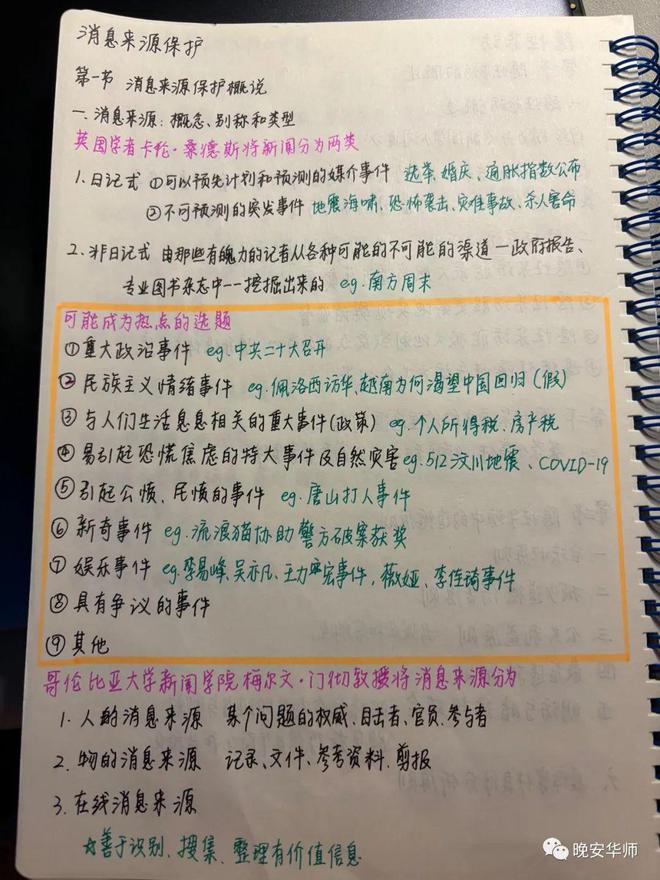 消息来源保护
第一节 消息来源保护概说
一.消息来源：概念、别称和类型
英国学者卡伦·桑德斯将新闻分为两类
1.日记式 ①可以预先计划和预测的媒介事件 选举、婚庆、通胀指数公布
②不可预测的突发事件 地震海啸、恐怖袭击、灾难事故、杀人害命
2.非日记式 由那些有魄力的记者从各种可能的不可能的渠道—政府报告、
专业图书杂志中——挖掘出来的 eg.南方周末
可能成为热点的选题
①重大政治事件 eg.中共二十大召开
②民族主义情绪事件 eg.佩洛西访华、越南为何渴望中国回归(假)
③与人们生活息息相关的重大事件(政策) eg.个人所得税.房产税
④易引起恐慌焦虑的特大事件及自然灾害eg.512汶川地震、COVID-19
⑤引起公愤、民愤的事件 eg.唐山打人事件
⑥新奇事件 eg.流浪猫协助警方破案获奖
⑦娱乐事件 eg.李易峰,吴亦凡、王力宏事件,薇娅、李佳琦事件
⑧具有争议的事件
⑨其他
哥伦比亚大学新闻学院梅尔文·门彻教授将消息来源分为
1.人的消息来源 某个问题的权威、目击者、官员.参与者
2.物的消息来源 记录、文件、参考资料.剪报
3.在线消息来源
☆善于识别、搜集、整理有价值信息
晚安华师